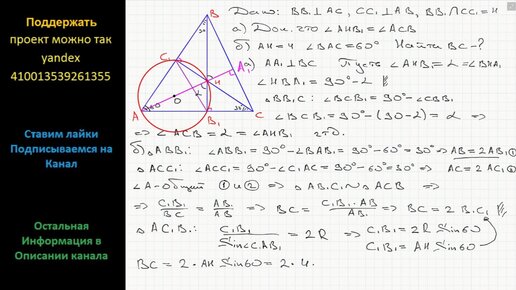 Поддержать
проект можно так
yandex
410013539261355
Ставим лайки
Подписываемся на
Канал
Остальная
Информация в
Описании канала
B
30°
C₁
A₁
H
α
O
60°
30°
A
B₁
C
Дано: BB₁⊥AC, CC₁⊥AB, BB₁∩CC₁=H
а) Док. что ∠AHB₁=∠ACB
б) AH=4 ∠BAC=60° Найти BC-?
а) AA₁⊥BC Пусть ∠AHB₁=α=∠BHA₁
∠HBA₁=90°-α
△BB₁C: ∠BCB₁=90°-∠CBB₁
∠BCB₁=90°-(90-α)=α ⇒
⇒ ∠ACB=α=∠AHB₁ чтд.
б) △ABB₁: ∠ABB₁=90°-∠BAB₁=90°-60°=30° ⇒ AB=2AB₁ ①
△ACC₁: ∠ACC₁=90°-∠C₁AC=90°-60°=30° ⇒ AC=2AC₁ ②
∠A-общий ① и ② ⇒ △AB₁C₁∾△ACB ⇒
⇒ C₁B₁/BC = AB₁/AB ⇒ BC = C₁B₁·AB/AB₁ ⇒ BC=2B₁C₁
△AC₁B₁: C₁B₁/Sin∠C₁AB₁ = 2R ⇒ C₁B₁=2R Sin60
C₁B₁=AH Sin60
BC=2·AH Sin60=2·4.